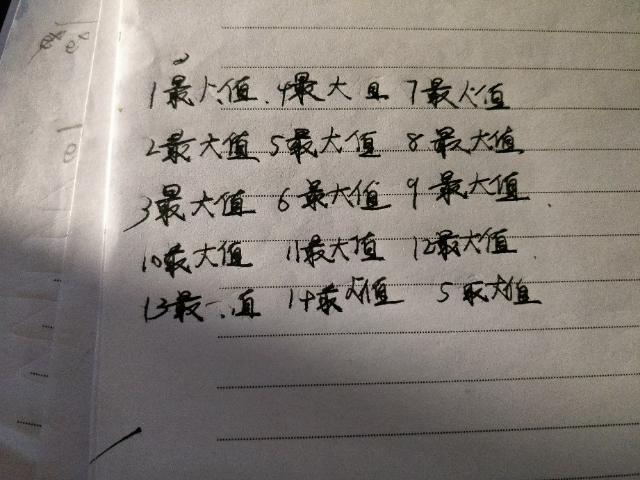 1最大值 4最大 7最大值
2最大值 5最大值 8最大值
3最大值 6最大值 9最大值
10最大值 11最大值 12最大值
13最 值 14最大值 5最大值